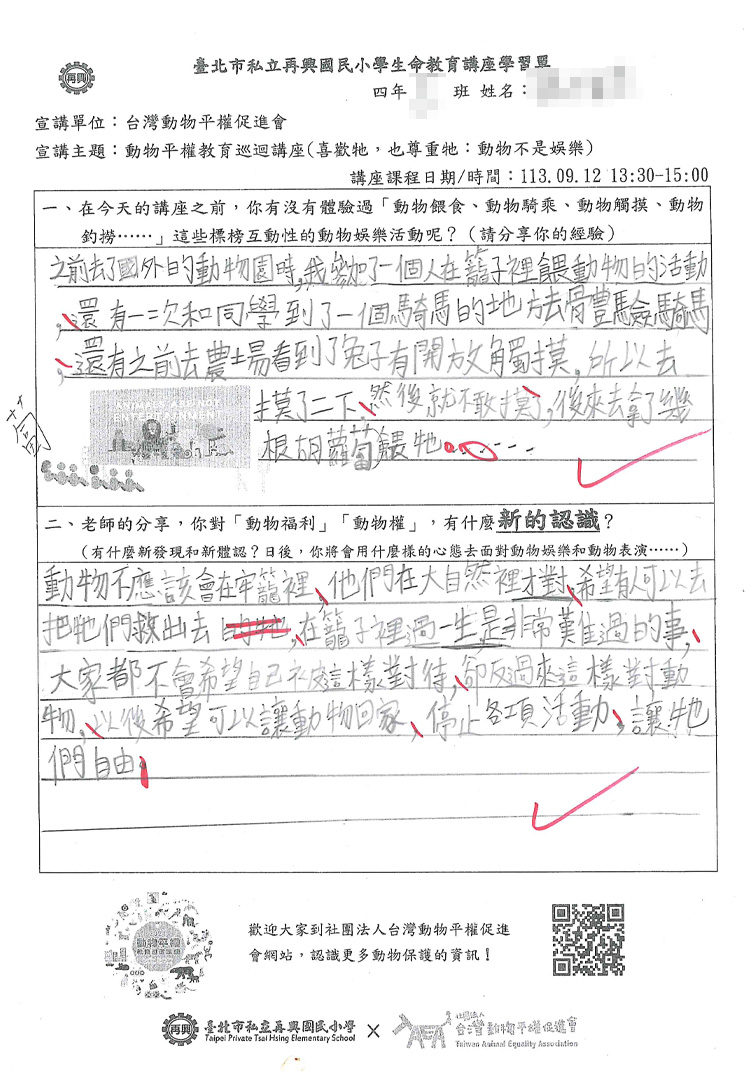 臺北市私立再興國民小學生命教育講座學習單
四年 班 姓名：
宣講單位：台灣動物平權促進會
宣講主題：動物平權教育巡迴講座(喜歡牠，也尊重牠：動物不是娛樂)
講座課程日期/時間：113.09.12 13:30-15:00
一、在今天的講座之前，你有沒有體驗過「動物餵食、動物騎乘、動物觸摸、動物
釣撈……」這些標榜互動性的動物娛樂活動呢？（請分享你的經驗）
之前去了國外的動物園時，我參加了一個人在籠子裡餵動物的活動
，還有一次和同學到了一個騎馬的地方去體驗騎馬
，還有之前去農場看到了兔子有開放觸摸，所以去
摸了二下，然後就不敢摸了，後來去拿了幾
根胡蘿蔔餵牠。……
二、老師的分享，你對「動物福利」「動物權」，有什麼新的認識？
（有什麼新發現和新體認？日後，你將會用什麼樣的心態去面對動物娛樂和動物表演……）
動物不應該會在牢籠裡，他們在大自然裡才對，希望有人可以去
把牠們救出去，在籠子裡過一生是非常難過的事，
大家都不會希望自己被這樣對待，卻反過來這樣對動
物，以後希望可以讓動物回家，停止各項活動，讓牠
們自由。
動物平權
歡迎大家到社團法人台灣動物平權促進
會網站，認識更多動物保護的資訊！
再興 臺北市私立再興國民小學 × 社團法人 台灣動物平權促進會
Taipei Private Tsai Hsing Elementary School TAEA Taiwan Animal Equality Association